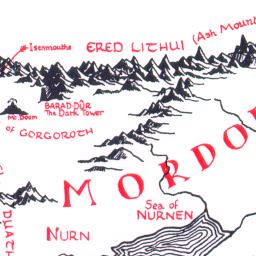 Isenmouthe
ERED LITHUI (Ash Mount
BARAD-DÛR
The Dark Tower
Mt. Doom
of GORGOROTH
MORDO
Sea of
NURNEN
NURN
DUATH